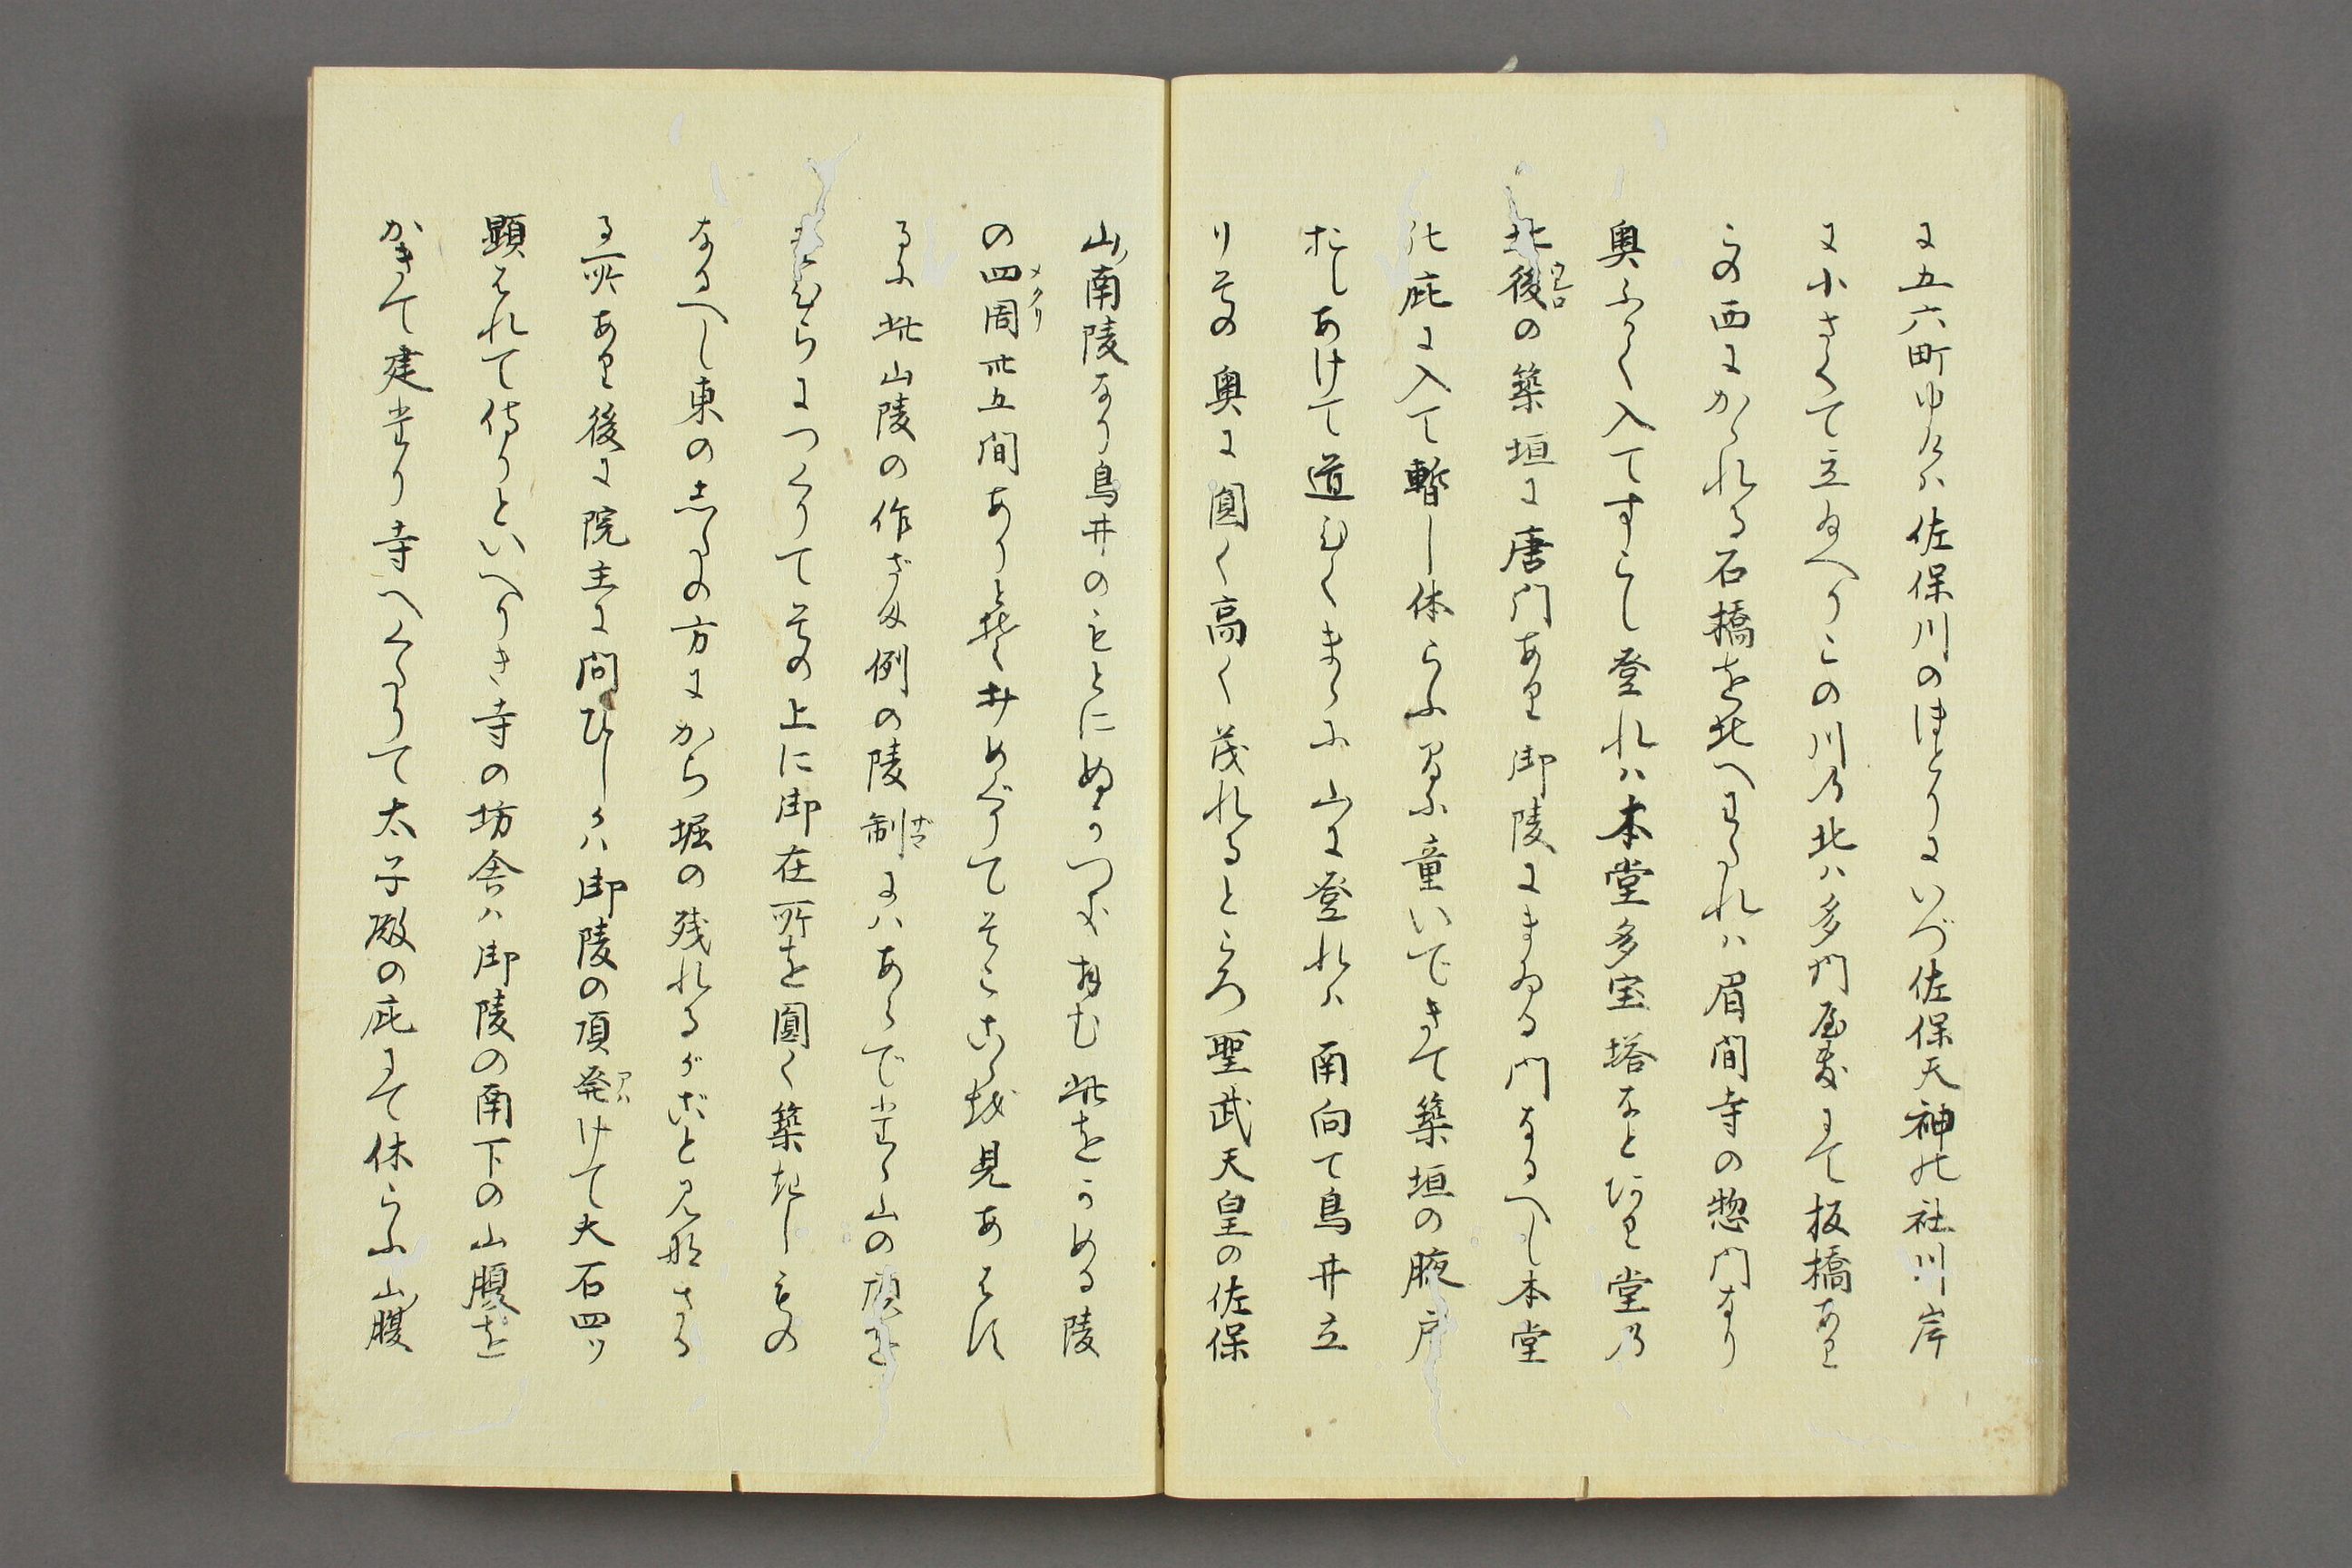 に五六町ゆけは佐保川のほとりにいづ佐保天神の社川岸
に小さくて立給へりこの川の北は多門屋敷にて板橋あり
その西にかゝれる石橋を北へわたれは眉間寺の惣門なり
奥ふかく入てすこし登れは本堂多宝塔なとあり堂の
北後の築垣に唐門あり御陵にまゐる門なるへし本堂
の庇に入て暫し休らふ間に童いできて築垣の腋戸
おしあけて道ひくまゝに山に登れは南向て鳥井立
りその奥に圓く高く茂れるところ聖武天皇の佐保
山南陵なり鳥井のもとにぬかつきをかむ此をかめる陵
の四周メクリ卅五間ありと見めぐりてそこらを見あはす
るに此山陵の作ざま例の陵制サマにはあらでたゝ山の頂を
たひらにつくりてその上に御在所を圓く築起しもの
なるへし東のうしろの方にから堀の残れるがごと見なさる
る所あり後に院主に問ひしかは御陵の頂発アハけて大石四ツ
顕はれて侍りといへりき寺の坊舎は御陵の南下の山腹を
かきて建たり寺へくたりて太子殿の庇にて休らふ山腹